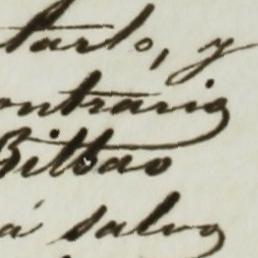 tarlo, y
ontraria
Bilbao
á salvo